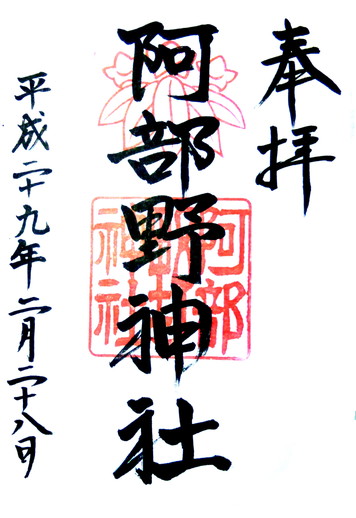 奉拝
阿部野神社
阿部野神社
平成二十九年二月二十八日